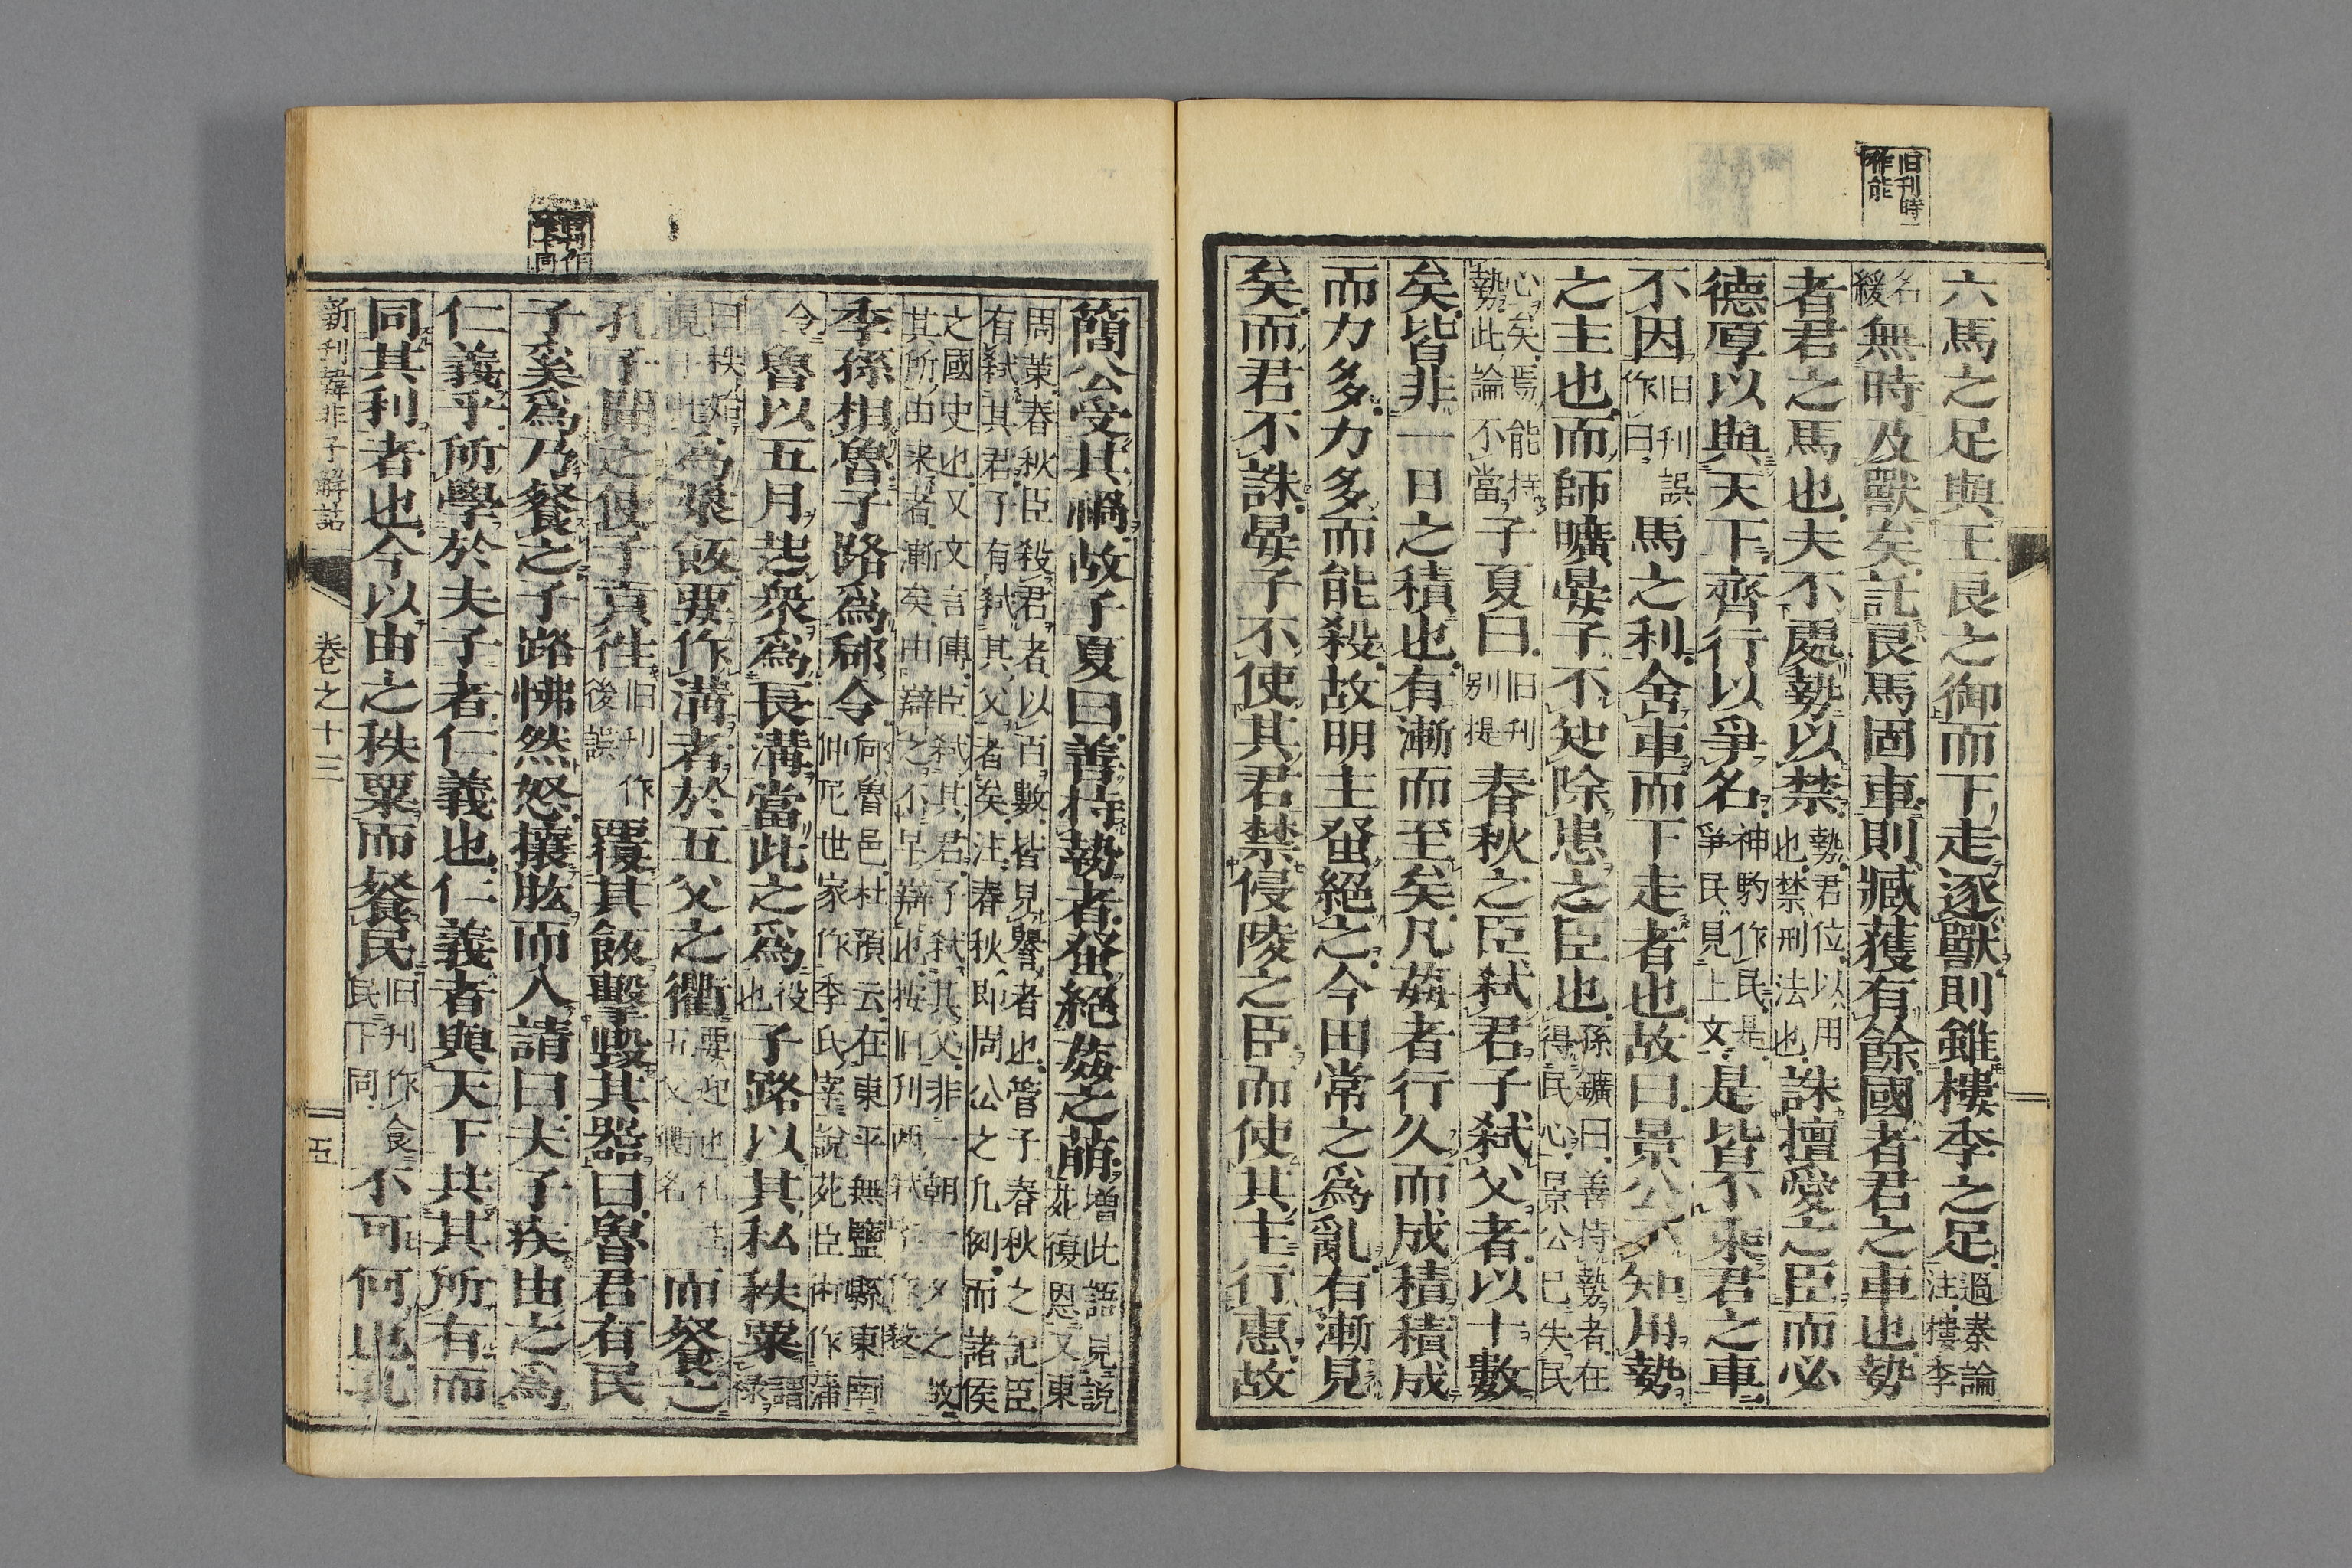 旧刋時
作能
六馬之足與王良之御而下走逐獸則雖樓季之足過秦論注樓季
名緩無時及獸矣託良馬固車則臧獲有餘國者君之車也勢
者君之馬也夫不處勢以禁勢君位以用也禁刑法也誅擅愛之臣而必
德厚以與天下齊行以爭名神駒作民是爭民見上文是皆不乘君之車
不因旧刋誤作曰馬之利舍車而下走者也故曰景公不知用勢
之主也而師曠晏子不知除患之臣也孫鑛曰善持勢者在得民心景公已失民
心矣焉能持勢此論不當子夏曰旧刋別提春秋之臣弑君子弑父者以十數
矣皆非一日之積也有漸而至矣凡姦者行久而成積積成
而力多力多而能殺故明主蚤絕之今田常之爲亂有漸見
矣而君不誅晏子不使其君禁侵陵之臣而使其主行惠故
簡公受其禍故子夏曰善持勢者蚤絕姦之萌增此語見説苑復恩又東
周策春秋臣殺君者以百數皆見譽者也管子春秋之記臣
有弑其君子有弑其父者矣注春秋即周公之凡例而諸侯
之國史也又文言傳臣弑其君子弑其父非一朝一夕之故
其所由来者漸矣由辯之不早辯也按旧刋兩弑字作殺
季孫相魯子路爲郈令郈魯邑杜預云在東平無鹽縣東南仲尼世家作季氏宰說苑臣術作蒲
令魯以五月起衆爲長溝當此之爲役也子路以其私秩粟謂祿
曰秩爲漿飯要作溝者於五父之衢要迎也五父衢名而餐之
孔子聞之使子貢往旧刋作後誤覆其飯擊毀其器曰魯君有民
子奚爲乃餐之子路怫然怒攘肱而入請曰夫子疾由之爲
仁義乎所學於夫子者仁義也仁義者與天下共其所有而
同其利者也今以由之秩粟而餐民旧刋作食民下同不可何也孔
新刊韓非子解詁
卷之十三
五